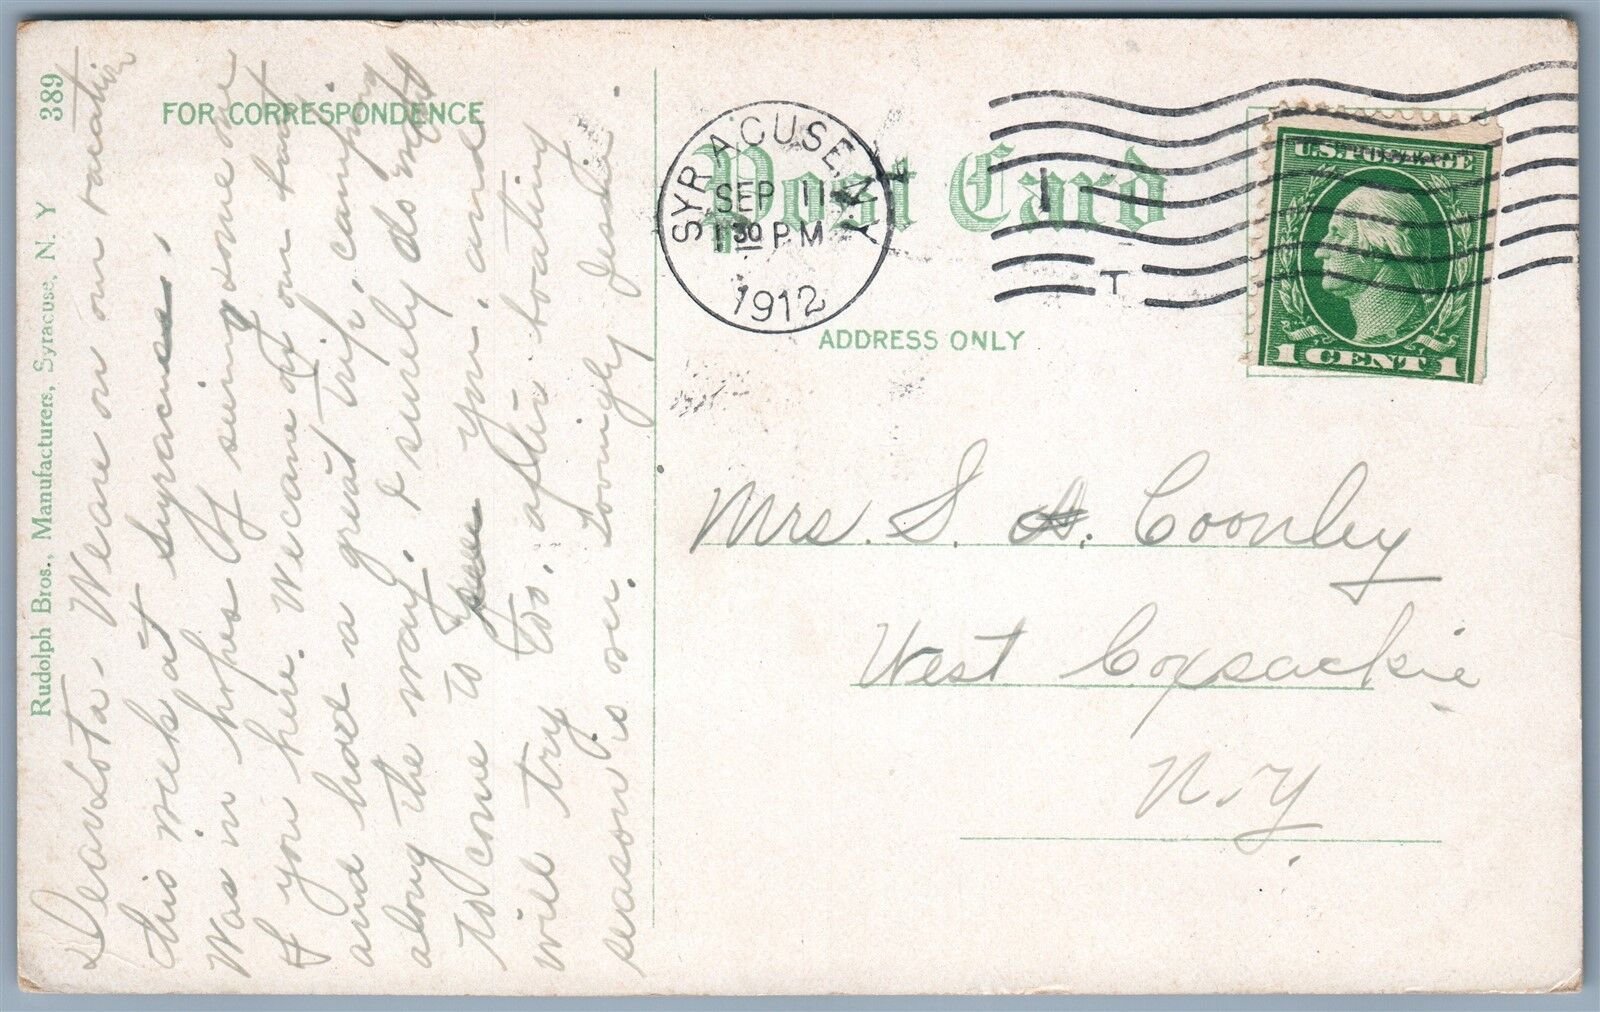 389
Rudolph Bros., Manufacturers, Syracuse, N. Y
FOR CORRESPONDENCE
Post Card
SYRACUSE, N.Y.
SEP 11
1 30 P.M.
1912
1
T
U.S. POSTAGE
1 CENT 1
ADDRESS ONLY
Mrs. S. A. Coonley
West Coxsackie
N.Y.
Dear Lota - We are on our vacation
this week at Syracuse.
Was in hopes of seeing some one
of you here. We came on our
and have a great trip, camping
along the way. I surely do
to come to see you, and
will try to, after boating
season is over. Lovingly Jessie